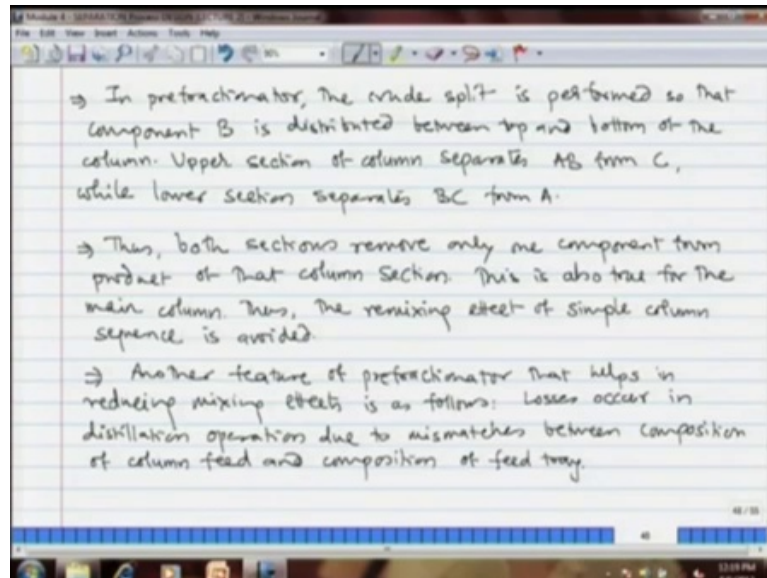 Module 4 - SEPARATION Process DESIGN (LECTURE 2) - Windows Journal
File Edit View Insert Actions Tools Help
⇒ In prefractionator, The crude split is performed so that
component B is distributed between top and bottom of the
column. Upper section of column separates AB from C,
while lower section separates BC from A.
⇒ Thus, both sections remove only one component from
product of that column section. This is also true for the
main column. Thus, The remixing effect of simple column
sequence is avoided.
⇒ Another feature of prefractionator that helps in
reducing mixing effects is as follows: Losses occur in
distillation operation due to mismatches between composition
of column feed and composition of feed tray.
48 / 55
12:19 PM